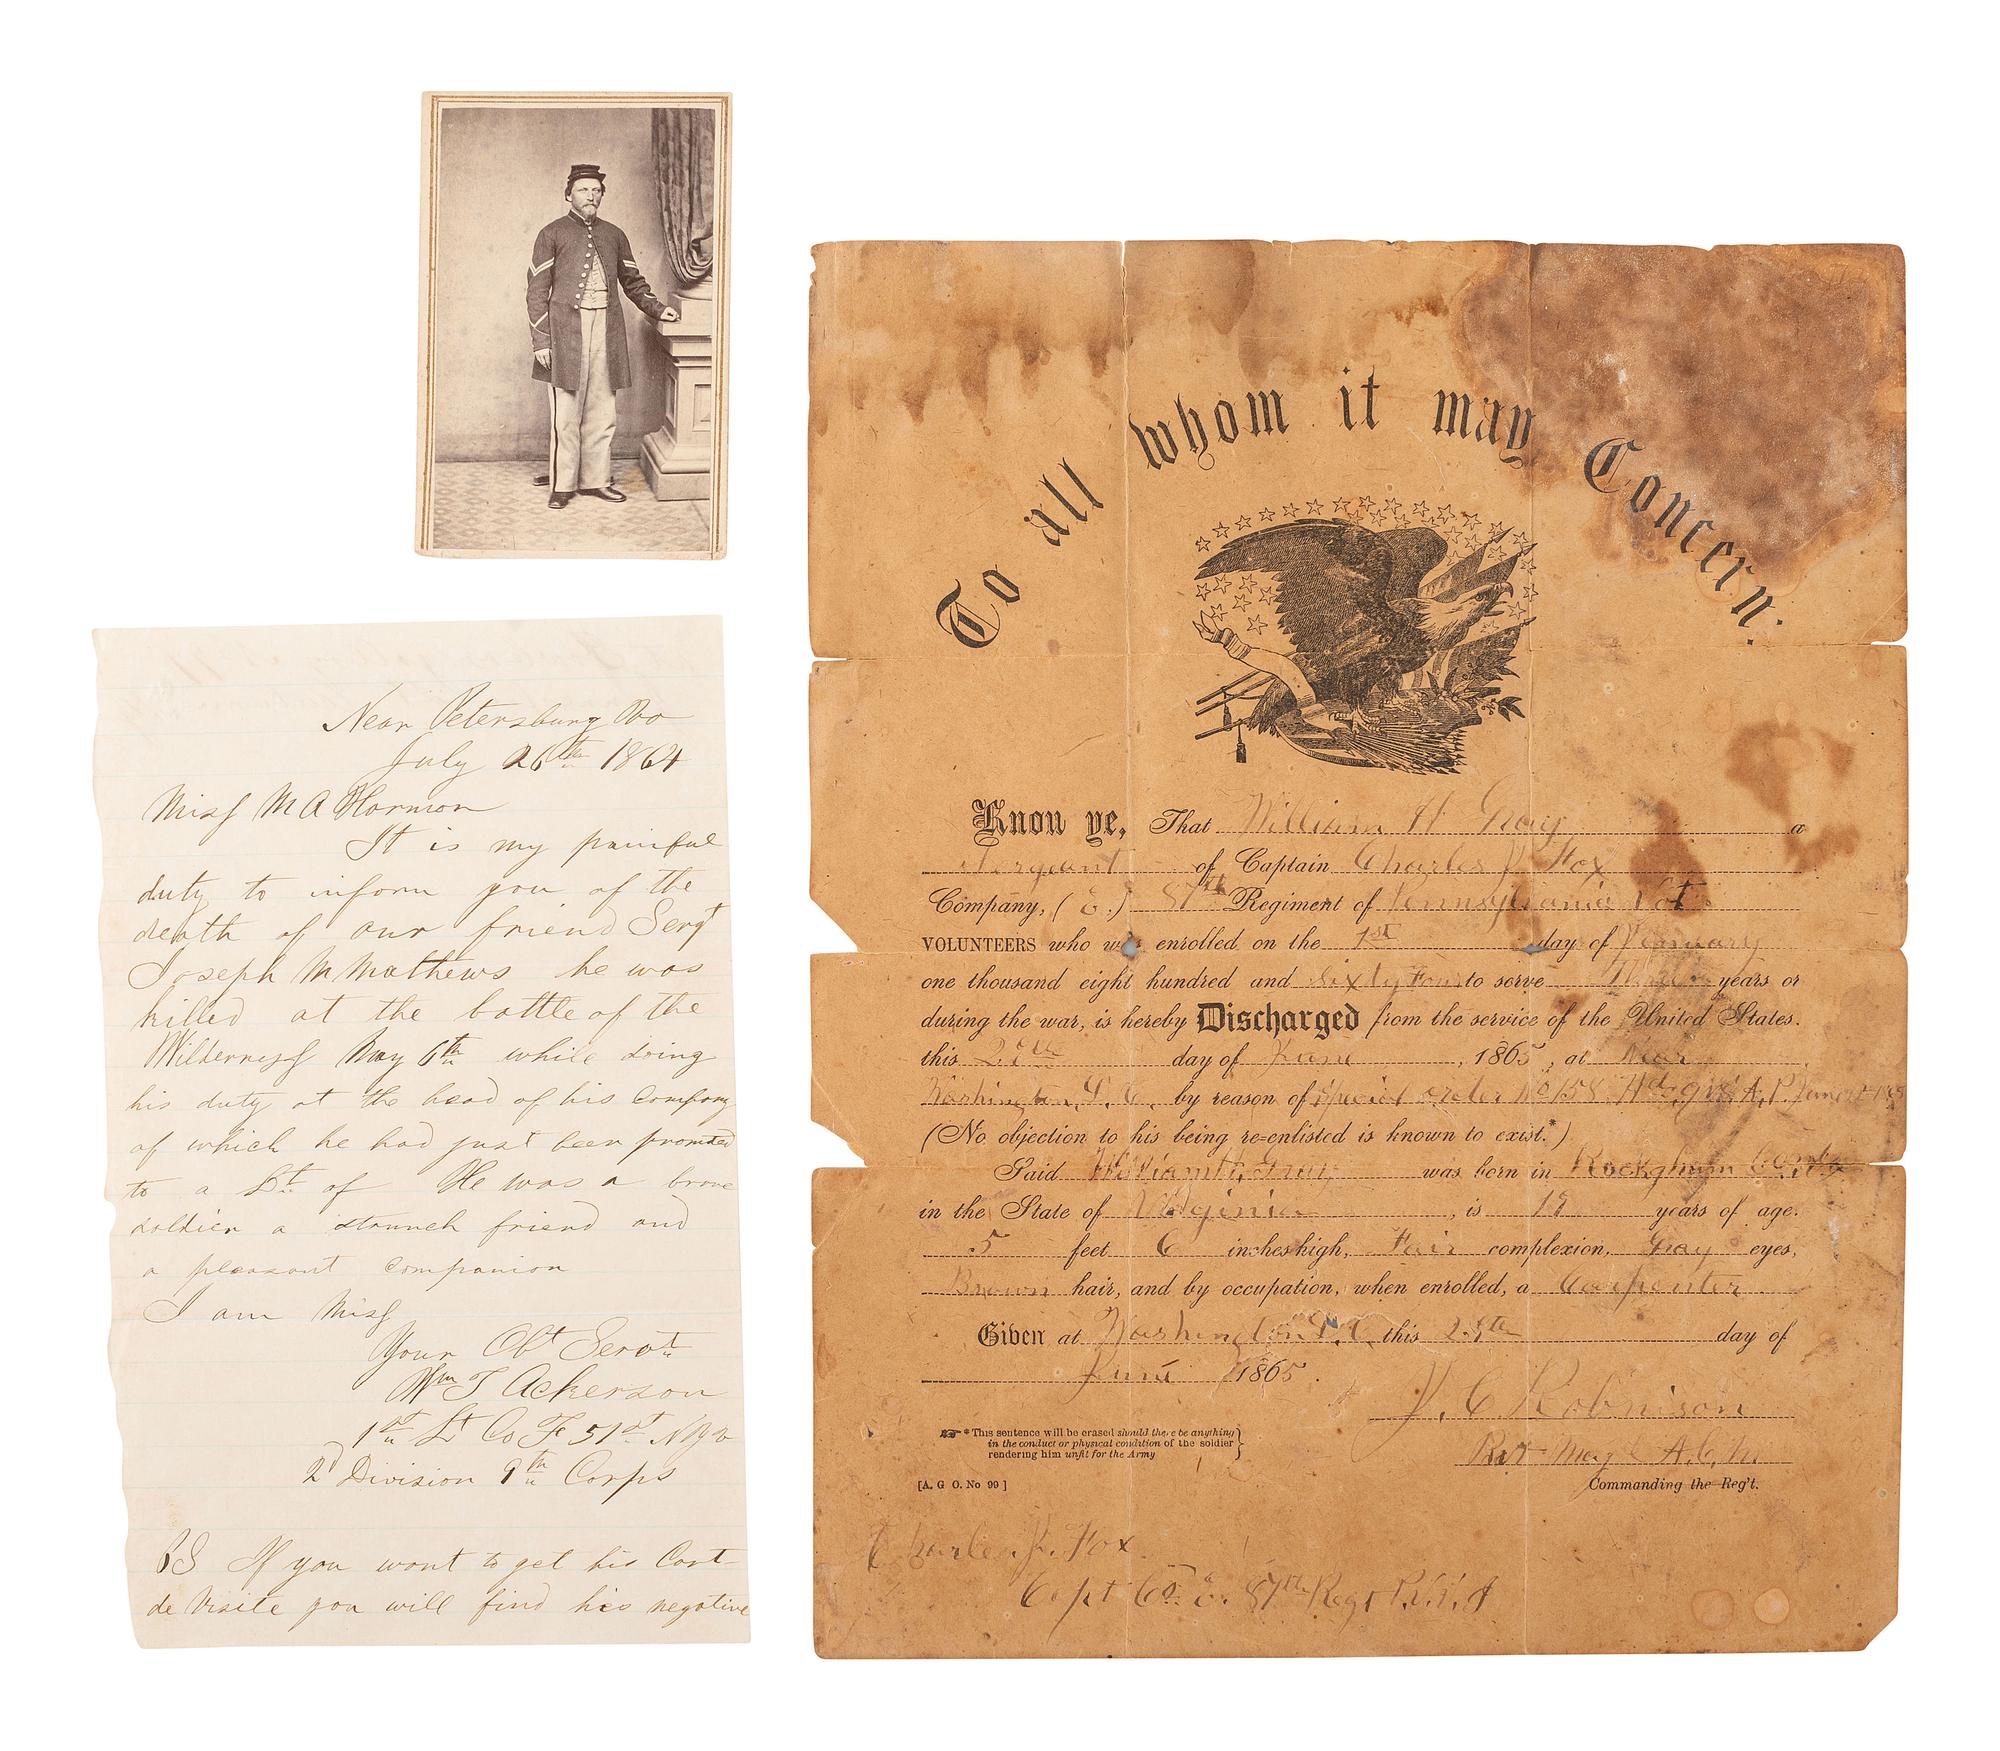 Near Petersburg Va
July 26th 1864
Miss M A Harmon
It is my painful
duty to inform you of the
death of our friend Sergt
Joseph M Mathews he was
killed at the battle of the
Wilderness May 6th while doing
his duty at the head of his Company
of which he had just been promoted
to a Lt of He was a brave
soldier a staunch friend and
a pleasant companion
I am Miss
Your Obt Servt
Wm T Ackerson
1st Lt Co F 51st
2d Division 9th Corps
PS If you want to get his Cart
de Visite you will find his negative
To all whom it may Concern:
Know ye, That William H Gray a
Sergeant of Captain Charles Fox
Company, (E.) 87th Regiment of Pennsylvania Vet
VOLUNTEERS who was enrolled on the 1st day of
one thousand eight hundred and Sixty Four to serve Three years or
during the war, is hereby Discharged from the service of the United States.
this day of June, 1865, at Near
Washington D. C. by reason of Special order No 158 Hd. qrs A. P.
(No objection to his being re-enlisted is known to exist.*)
Said William H. Gray was born in County
in the State of Virginia, is 19 years of age.
5 feet 6 inches high, Fair complexion, Gray eyes,
Brown hair, and by occupation, when enrolled, a Carpenter
Given at Washington D. C. this day of
June 1865.
C Robinson
Commanding the Reg't.
* This sentence will be erased should there be anything
in the conduct or physical condition of the soldier
rendering him unfit for the Army
[A. G O. No 99]
Charles Fox
Capt Co. E. 87th Regt P. V. V. I